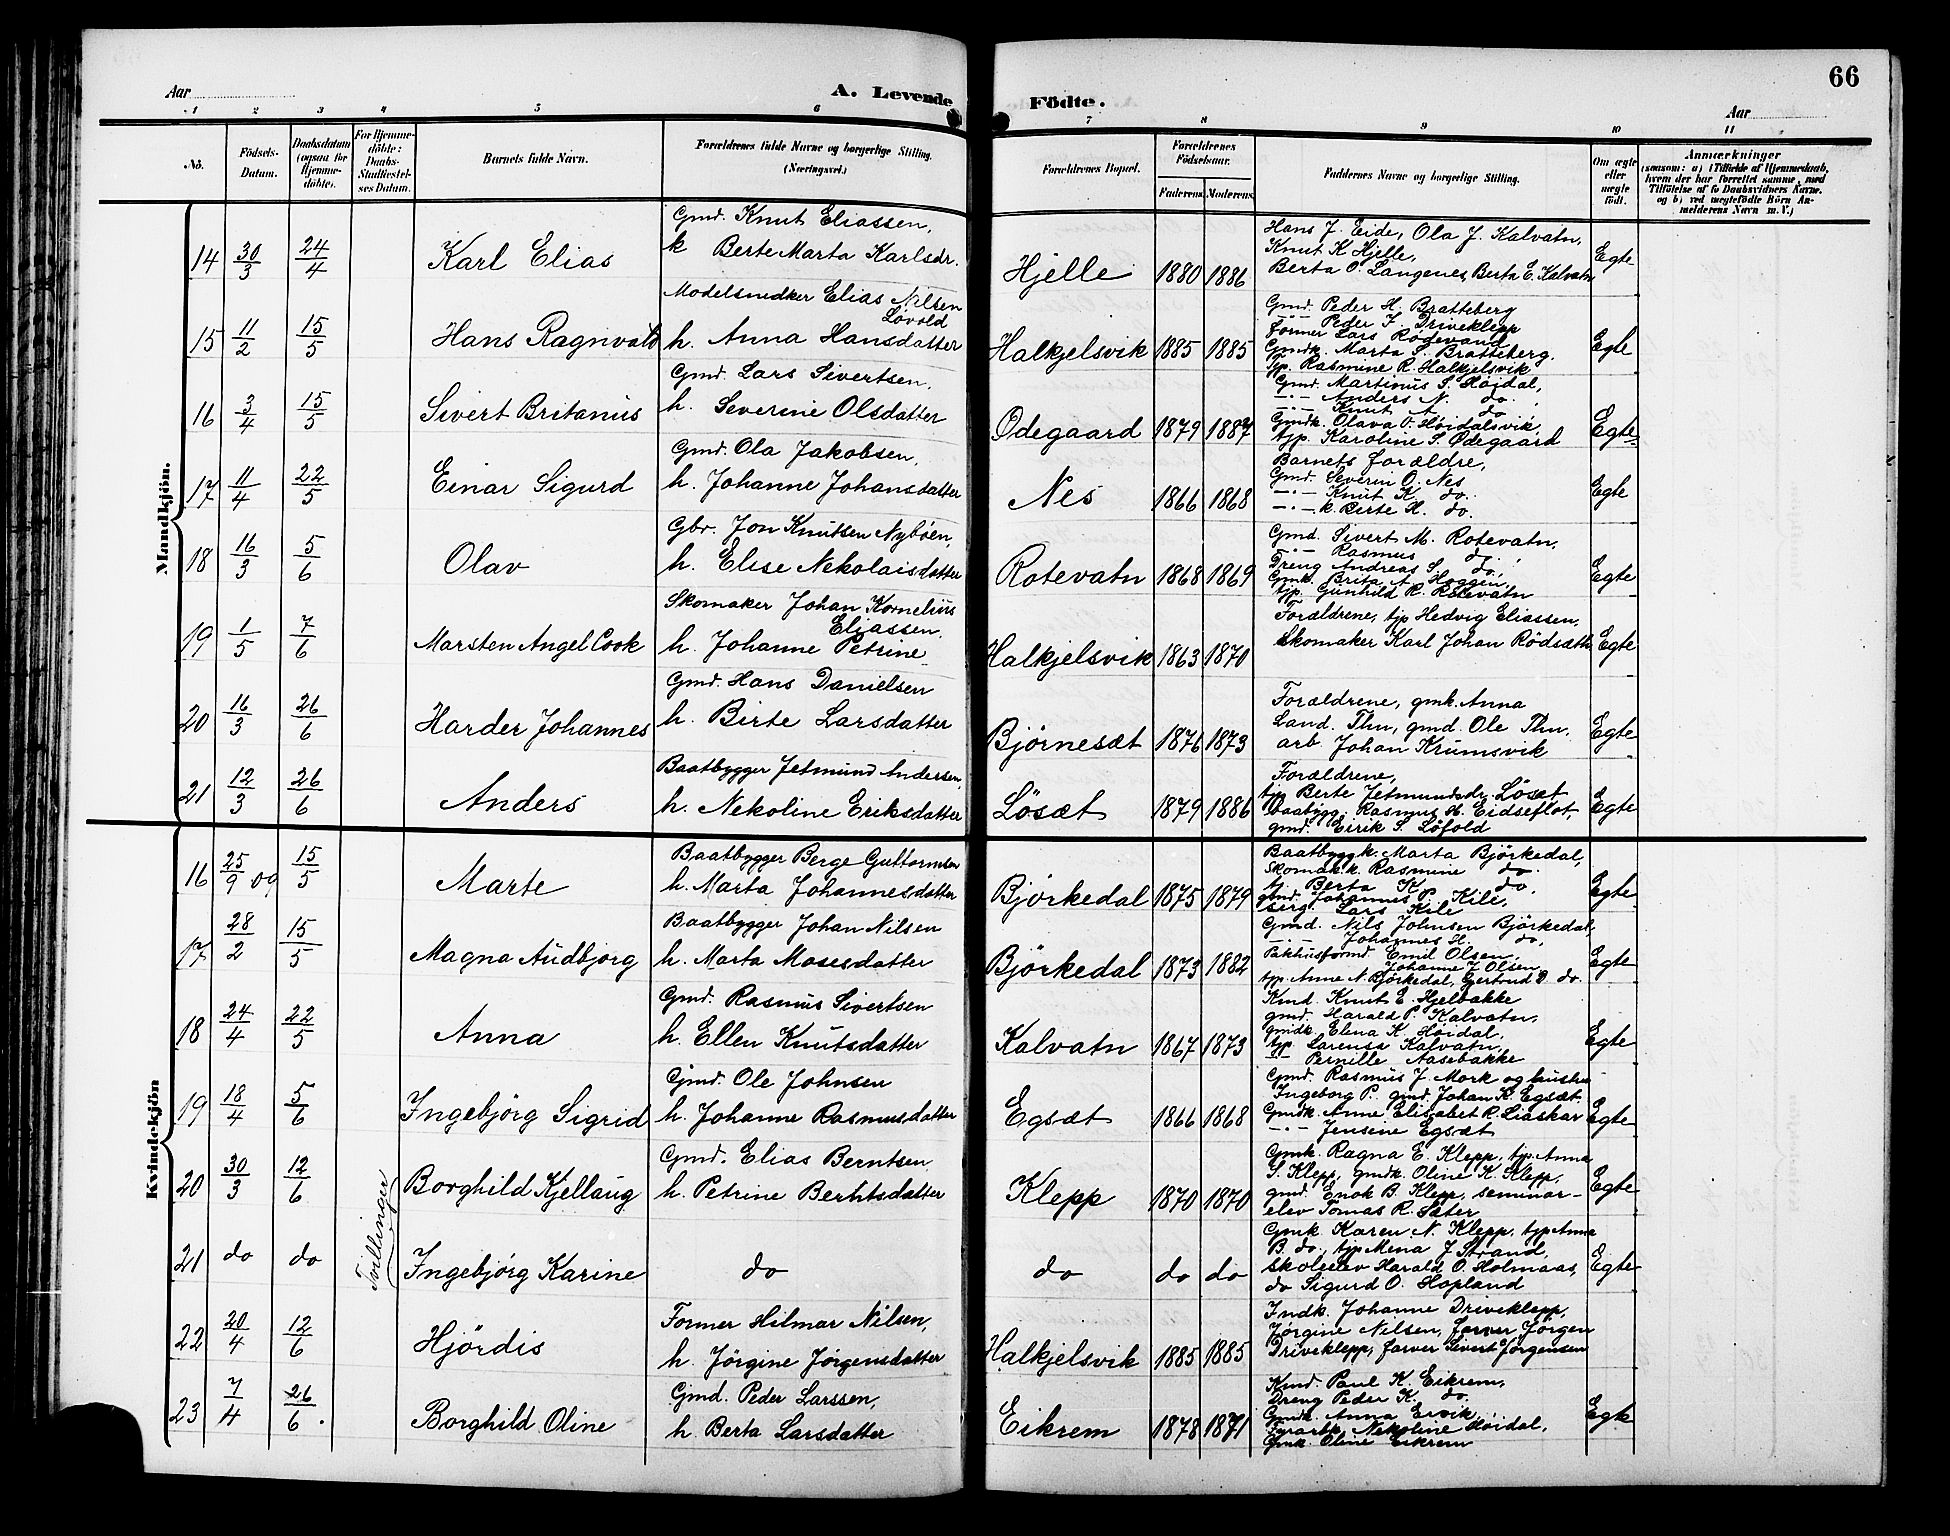 66
Aar
A. Levende
Födte.
Aar
1 2 3 4 5 6 7 8 9 10 11
No.
Födsels-Datum.
Daabsdatum (ogsaa for Hjemme-döbte).
For Hjemme-döbte: Daabs-Stadfæstel-ses Datum.
Barnets fulde Navn.
Forældrenes fulde Navne og borgerlige Stilling. (Næringsvei.)
Forældrenes Bopæl.
Forældrenes Födselsaar.
Faderens Moderens
Faddernes Navne og borgerlige Stilling.
Om ægte eller uægte födt.
Anmærkninger
(saasom: a) i Tilfælde af Hjemmedaab, hvem der har forrettet samme, med Tilföielse af to Daabsvidners Navne, og b) ved uægtefödte Börn An-melderens Navn m. V.)
Mandkjön.
14 30/3 24/4 Karl Elias
Gmd. Knut Eliassen,
k Berte Marta Karlsdr.
Hjelle 1880 1886
Hans J. Eide, Ola J. Kalvatn,
Knut K Hjelle,
Berta O. Langenes, Berta E. Kalvatn
Egte
15 11/2 15/5 Hans Ragnvald
Modelsnedker Elias Nilsen
Løvold
h. Anna Hansdatter
Halkjelsvik 1885 1885
Gmd. Peder H. Bratteberg
-"- Peder J. Driveklepp
former Lars Rødevand
Gmdk. Marta S. Bratteberg.
tjp. Rasmine R. Halkjelsvik
Egte
16 3/4 15/5 Sivert Britanus
Gmd. Lars Sivertsen,
h. Severine Olsdatter
Ødegaard 1879 1887
Gmd. Martinus S. Høidal,
-"- Anders N. do.
-"- Knut A. do
Gmdk. Olava O. Høidalsvik,
tjp. Karoline S. Ødegaard
Egte
17 11/4 22/5 Einar Sigurd
Gmd. Ola Jakobsen,
h. Johanne Johansdatter
Nes 1866 1868
Barnets forældre,
Gmd. Severin O. Nes
-"- Knut K. do.
-"- k. Berte H. do.
Egte
18 16/3 5/6 Olav
Gbr. Jon Knutsen Nybøen,
h. Elise Nekolaisdatter
Rotevatn 1868 1869
Gmd. Sivert M. Rotevatn,
-"- Rasmus do.
Dreng Andreas S. do,
Gmk. Brita A. Hoggen,
tjp. Gunhild R. Rotevatn
Egte
19 1/5 7/6 Marsten Angel Cook
Skomaker Johan Kornelius
Eliassen,
h. Johanne Petrine
Halkjelsvik 1863 1870
Forældrene, tjp Hedvig Eliassen,
Skomaker Karl Johan Rödsæth
Egte
20 16/3 26/6 Harder Johannes
Gmd. Hans Danielsen
h. Birte Larsdatter
Bjørnesæt 1876 1873
Forældrene, gmk. Anna
Land. Thn, gmd. Ole Thn.
arb. Johan Krumsvik
Egte
21 12/3 26/6 Anders
Baatbygger Jetmund Andersen,
h. Nekoline Eriksdatter
Løsæt 1879 1886
Forældrene,
tjp Berte Jetmundsdr. Løsæt
Baatbygg. Rasmus H. Eidseflot,
gmd. Eirik S. Løfold
Egte
Kvindekjön
16 25/9 09 15/5 Marte
Baatbygger Berge Guttormsen
h. Marta Johannesdatter
Bjørkedal 1875 1879
Baatbyggk. Marta Björkedal,
Skomak.k Rasmine do.
tj. Berta K. do,
gmd. Johannes P. Kile,
serg. Lars Kile
Egte
17 28/2 15/5 Magna Audbjørg
Baatbygger Johan Nilsen
h. Marta Mosesdatter
Björkedal 1873 1882
Gmd. Nils Johnsen Björkedal,
-"- Johannes H. do,
Pakhusformd Emil Olsen,
Johanne J. Olsen,
tjp. Anne N. Bjørkedal, Gjertrud D. do
Egte
18 24/4 22/5 Anna
Gmd. Rasmus Sivertsen
h. Ellen Knutsdatter
Kalvatn 1867 1873
Kmd. Knut E. Hjelbakke
gmd. Harald P. Kalvatn,
gmdk. Elena K. Høidal,
tjp Larensa Kalvatn,
-"- Pernille Aasebakke
Egte
19 18/4 5/6 Ingebjörg Sigrid
Gmd. Ole Johnsen
h. Johanne Rasmusdatter
Egsæt 1866 1868
Gmd. Rasmus J. Mork og hustru
Ingeborg P. gmd. Johan K. Egsæt,
Gmdk. Anne Elisabet R. Liaskar
-"- Jensine Egsæt
Egte
Tvillinger
20 30/3 12/6 Borghild Kjellaug
Gmd. Elias Berntsen
h. Petrine Berntsdatter
Klepp 1870 1870
Gmk. Ragna E. Klepp, tjp. Anna
S. Klepp, gmdk. Oline K. Klepp,
gmd. Enok B. Klepp, seminar-
elev Tomas R. Sæter
Egte
21 do do Ingebjørg Karine
do
do do do
Gmk. Karen N. Klepp, tjp. Anna
B. do., tjp Mena J Strand,
skoleelev Harald O. Holmaas,
do Sigurd O. Hopland
Egte
22 20/4 12/6 Hjördis
Former Hilmar Nilsen,
h. Jörgine Jörgensdatter
Halkjelsvik 1885 1885
Indk. Johanne Driveklepp,
Jørgine Nilsen, farver Jørgen
Driveklepp, farver Sivert Jørgensen
23 7/4 26/6 Borghild Oline
Gmd. Peder Larssen,
h Berta Larsdatter
Eikrem 1878 1871
Kmd. Paul K. Eikrem,
Dreng Peder K. do
Gmdk. Anna Ervik
Nekoline Høidal,
Gmk. Oline Eikrem
Egte